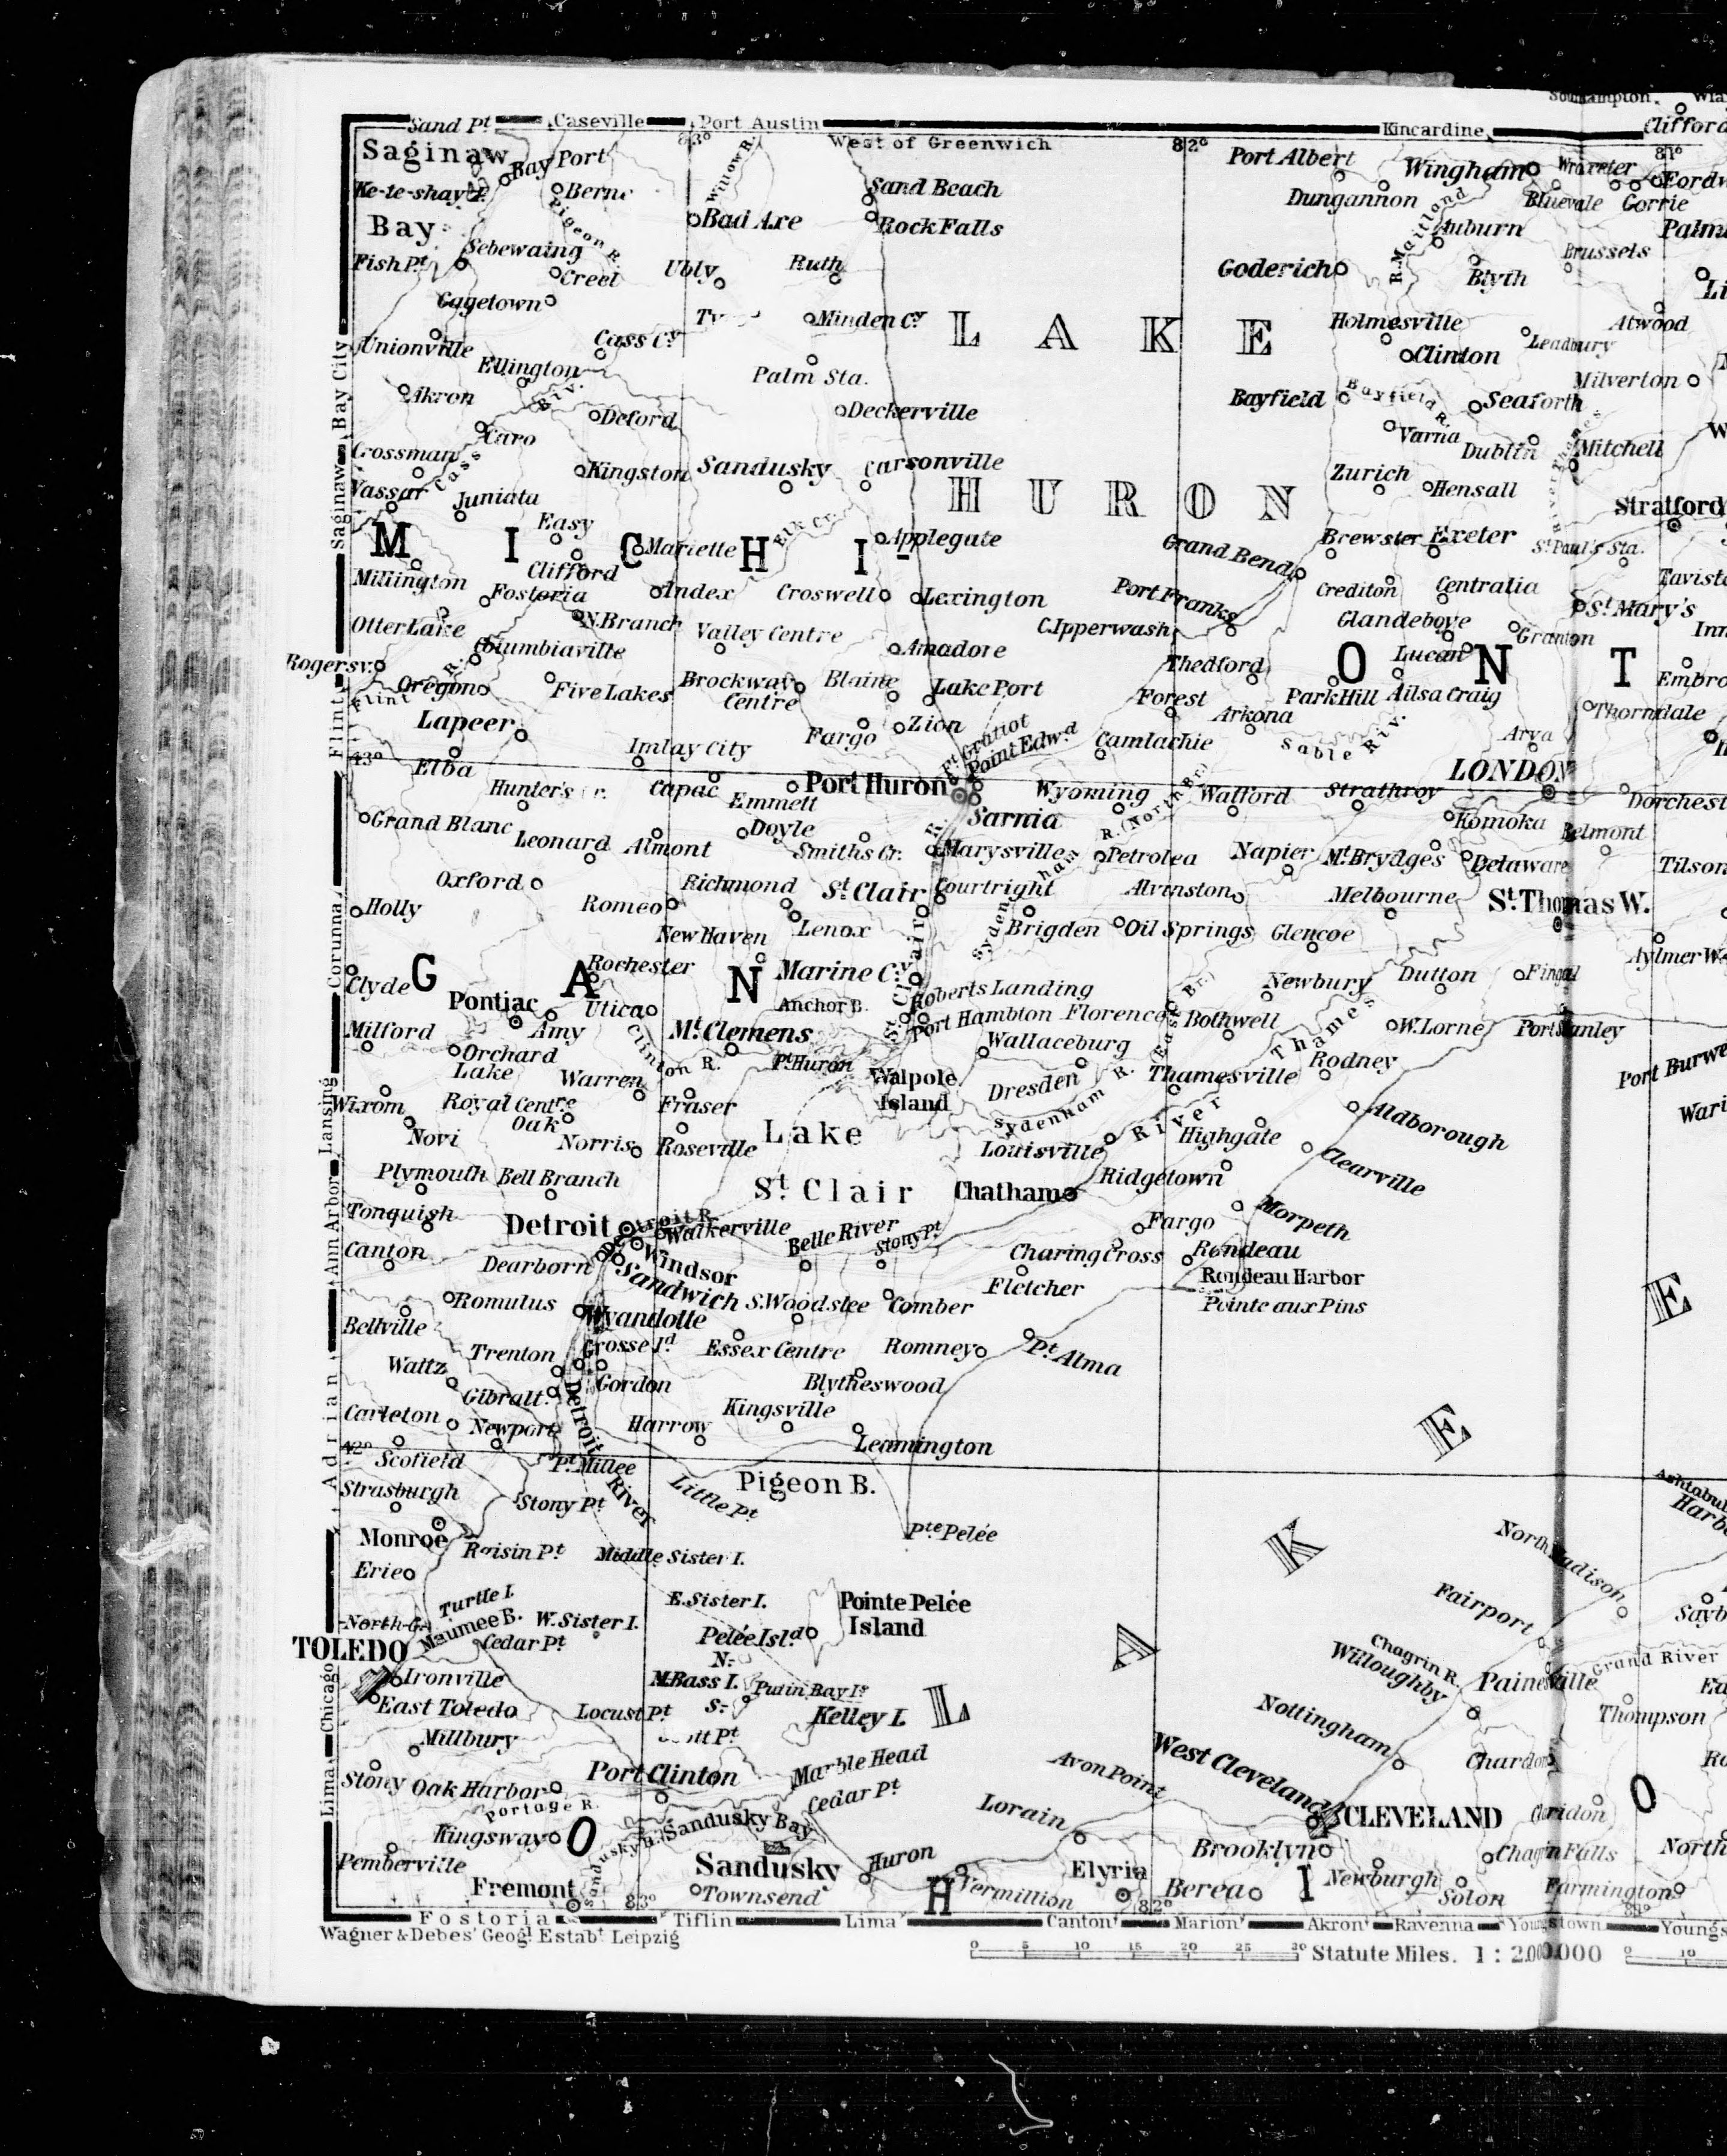 Southampton.
Sand Pt Caseville Port Austin Kincardine Clifford
83° West of Greenwich 82° 81°
Saginaw Bay Port Willow R. Port Albert Wingham Wroxeter
Ke-te-shay P. Sand Beach Dungannon Bluevale Gorrie
Bay Pigeon R. Bad Axe Rock Falls R. Maitland Auburn
Fish Pt Sebewaing Creel Ubly Ruth Goderich Blyth Brussels
Gagetown
Minden Cy LAKE Holmesville Leadbury Atwood
Unionville Cass Cy Clinton
Ellington Palm Sta. Milverton
Akron Riv. Deford Deckerville Bayfield Bayfield R. Seaforth
Caro Varna Dublin Mitchell
Crossman Cass Kingston Sandusky Carsonville Zurich
Vassar Juniata HURON Hensall Stratford
Easy Elk Cr. Applegate Brewster Exeter St Paul's Sta.
MICHI- Mariette Grand Bend
Millington Clifford Crediton Centralia
Fostoria Index Croswell Lexington Port Franks St Mary's
Otter Lake N. Branch Valley Centre C. Ipperwash Glandeboye Granton
Columbiaville Amadore Thedford Lucan ONT
Rogersv. Flint R. Oregon Five Lakes Brockway Centre Blaine Lake Port Forest Park Hill Ailsa Craig
Lapeer Fargo Zion Arkona Thorndale
Imlay City Ft Gratiot Point Edwd Camlachie Sable Riv. Arva
43° Elba Capac Port Huron Wyoming Walford Strathroy LONDON
Hunter's Emmett
Grand Blanc Leonard Almont Doyle Smiths Cr. Sarnia R. (North Br.) Komoka Belmont
Marysville Petrolea Napier Mt Brydges Delaware
Oxford Richmond St Clair Courtright Alvinston Melbourne St Thomas W.
Holly Romeo Lenox Brigden Oil Springs Glencoe
New Haven
Clyde GAN Rochester Marine Cy Newbury Dutton Fingal Aylmer W.
Pontiac Utica Anchor B. Roberts Landing
Milford Amy Mt Clemens Port Hambton Florence Bothwell W. Lorne Port Stanley
Orchard Lake Clinton R. Pt Huron Wallaceburg East Br.) Rodney
Warren Walpole Island Dresden Thamesville Thames
Wixom Royal Oak Centre Fraser Sydenham R. River Aldborough
Novi Norris Roseville Lake Louisville Highgate Clearville
Plymouth Bell Branch St Clair Chatham Ridgetown
Tonquish Detroit Detroit R. Walkerville Belle River Stony Pt Fargo Morpeth
Canton Dearborn Windsor Charing Cross Rondeau
Sandwich Fletcher Rondeau Harbor
Romulus Wyandotte S. Woodslee Comber Pointe aux Pins
Bellville Grosse Id Essex Centre Romney Pt Alma
Waltz Trenton Gordon Blytheswood
Gibralt. Kingsville
Carleton Newport Harrow Leamington
42° Scofield Pt Millee Pigeon B.
Strasburgh Stony Pt Detroit River Little Pt
Monroe Raisin Pt Middle Sister I. Pte Pelée
Erie Turtle I. E. Sister I. Pointe Pelée Island North Madison
North C. Maumee B. W. Sister I. Pelée Isld Fairport
TOLEDO Cedar Pt N. Chagrin R. Grand River
Ironville M. Bass I. Putin Bay Is Willoughby Painesville
East Toledo Locust Pt S. Kelley I. Nottingham Thompson
Millbury Marble Head Avon Point West Cleveland Chardon
Stony Oak Harbor Port Clinton Cedar Pt LAKE E
Portage R. Sandusky R. Sandusky Bay Lorain CLEVELAND
Kingsway Brooklyn Chagrin Falls
Pemberville Sandusky Huron Elyria Newburgh
Fremont Townsend Vermillion Berea Solon Farmington
OHIO
83° 82° 81°
Fostoria Tiflin Lima Canton Marion Akron Ravenna Youngstown
Saginaw Bay City
Flint
Corunna
Lansing
Ann Arbor
Adrian
Chicago
Lima
Wagner & Debes' Geogl Estabt Leipzig
0 5 10 15 20 25 30 Statute Miles. 1:2.000.000 0 10